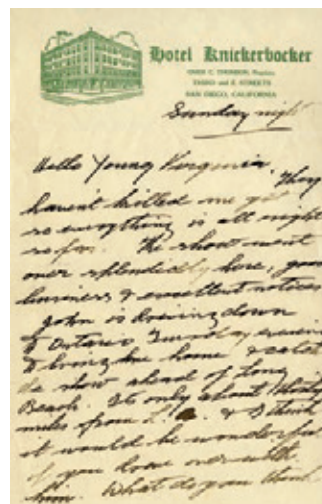 Hotel Knickerbocker
THIRD and E STREETS
SAN DIEGO, CALIFORNIA
Sunday night
Hello Young Virginia.
They
haven't killed me yet
so everything is all right
so far. The show went
over splendidly here, good
business & excellent notices
John is driving down
to Ontario Tuesday evening
to bring me home & catch
the show ahead of Long
Beach. Its only about thirty
miles from L.A. & I think
it would be wonderful
if you drove over with
him. What do you think